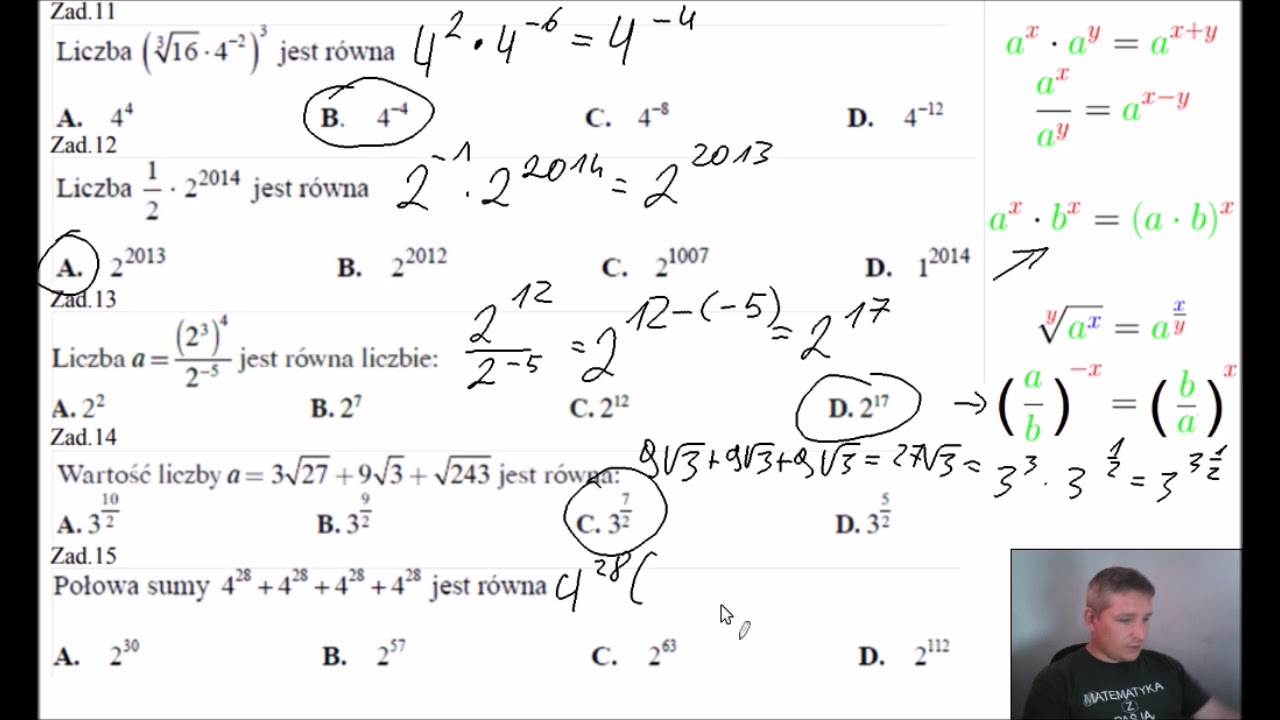 Zad.11
Liczba (∛16 · 4⁻²)³ jest równa 4² · 4⁻⁶ = 4⁻⁴
A. 4⁴ B. 4⁻⁴ C. 4⁻⁸ D. 4⁻¹²
Zad.12
Liczba 1/2 · 2²⁰¹⁴ jest równa 2⁻¹ · 2²⁰¹⁴ = 2²⁰¹³
A. 2²⁰¹³ B. 2²⁰¹² C. 2¹⁰⁰⁷ D. 1²⁰¹⁴
Zad.13
Liczba a = (2³)⁴/2⁻⁵ jest równa liczbie: 2¹²/2⁻⁵ = 2^(12-(-5)) = 2¹⁷
A. 2² B. 2⁷ C. 2¹² D. 2¹⁷
Zad.14
Wartość liczby a = 3√27 + 9√3 + √243 jest równa: 9√3 + 9√3 + 9√3 = 27√3 = 3³ · 3^(1/2) = 3^(3 1/2)
A. 3^(10/2) B. 3^(9/2) C. 3^(7/2) D. 3^(5/2)
Zad.15
Połowa sumy 4²⁸ + 4²⁸ + 4²⁸ + 4²⁸ jest równa 4²⁸(
A. 2³⁰ B. 2⁵⁷ C. 2⁶³ D. 2¹¹²
aˣ · aʸ = aˣ⁺ʸ
aˣ/aʸ = aˣ⁻ʸ
aˣ · bˣ = (a · b)ˣ
ʸ√aˣ = a^(x/y)
→ (a/b)⁻ˣ = (b/a)ˣ
MATEMATYKA
Z
PASJĄ